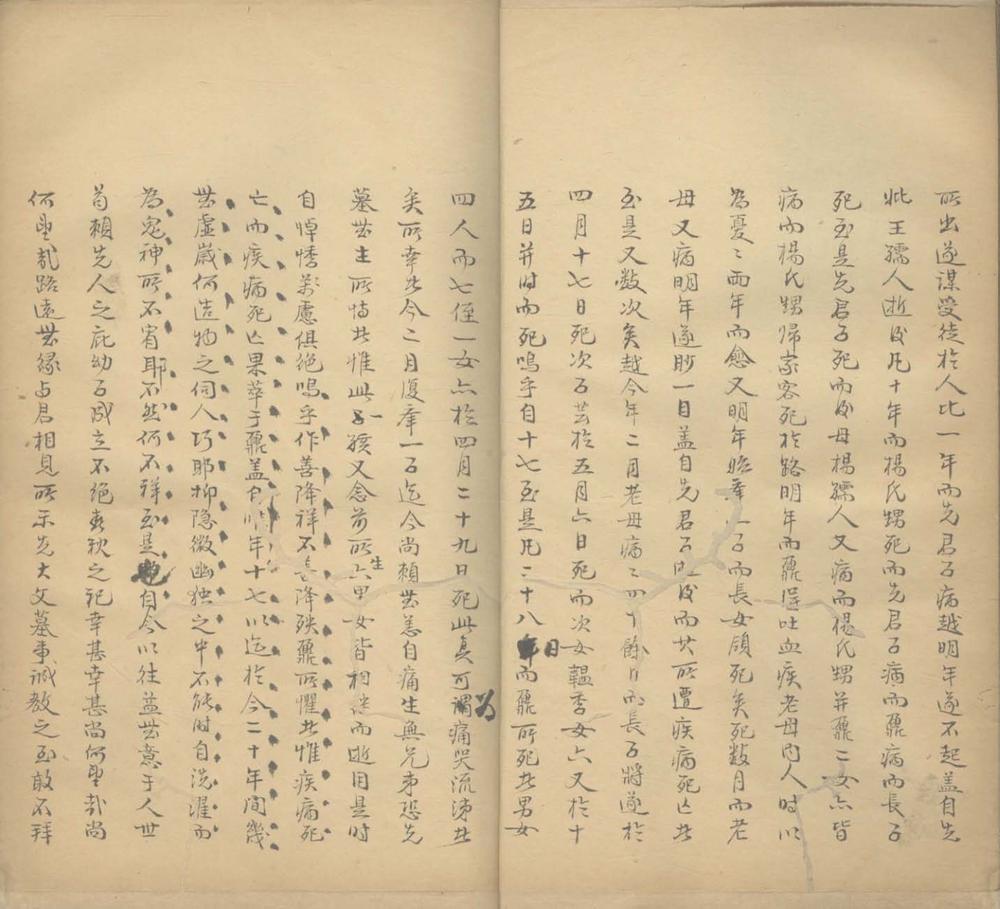 所出遂謀受徒於人比一年而先君子病越明年遂不起蓋自先
妣王孺人逝後凡十年而楊氏甥死而先君子病而飛病而長子
死至是先君子死而後母楊孺人又病而楊氏甥并飛二女亦皆
病而楊氏甥歸家客死於路明年而飛得吐血疾老母內人時以
為憂〻而年而愈又明年臨產一子而長女頎死矣死數月而老
母又病明年遂眇一目蓋自先君子逝後而其所遭疾病死亡者
至是又數次矣越今年二月老母病〻四十餘日而長子將遂於
四月十七日死次子芸於五月六日死而次女韞季女亦又於十
五日并時而死嗚乎自十七至是凡二十八日而飛所死者男女
四人而七侄一女亦於四月二十九日死此真可謂為痛哭流涕者
矣所幸者今二月復產一子迄今尚賴無恙自痛生無兄弟恐先
墓無主所恃者惟此一孩又念前所生六男女皆相繼而逝用是時
自悼悸萬慮俱絕嗚乎作善降祥不善降殃飛所懼者惟疾病死
亡而疾病死亡果萃于飛蓋自 年十七以迄於今二十年間幾
無虛歲何造物之伺人巧耶抑隱微幽独之中不能時自洗濯而
為鬼神所不宥耶不然何不祥至是也自今以往益無意于人世
苟賴先人之庇幼子成立不絕春秋之祀幸甚幸甚尚何望哉尚
何望哉路遠無緣与君相見所示先大父墓事誠教之至敢不拜